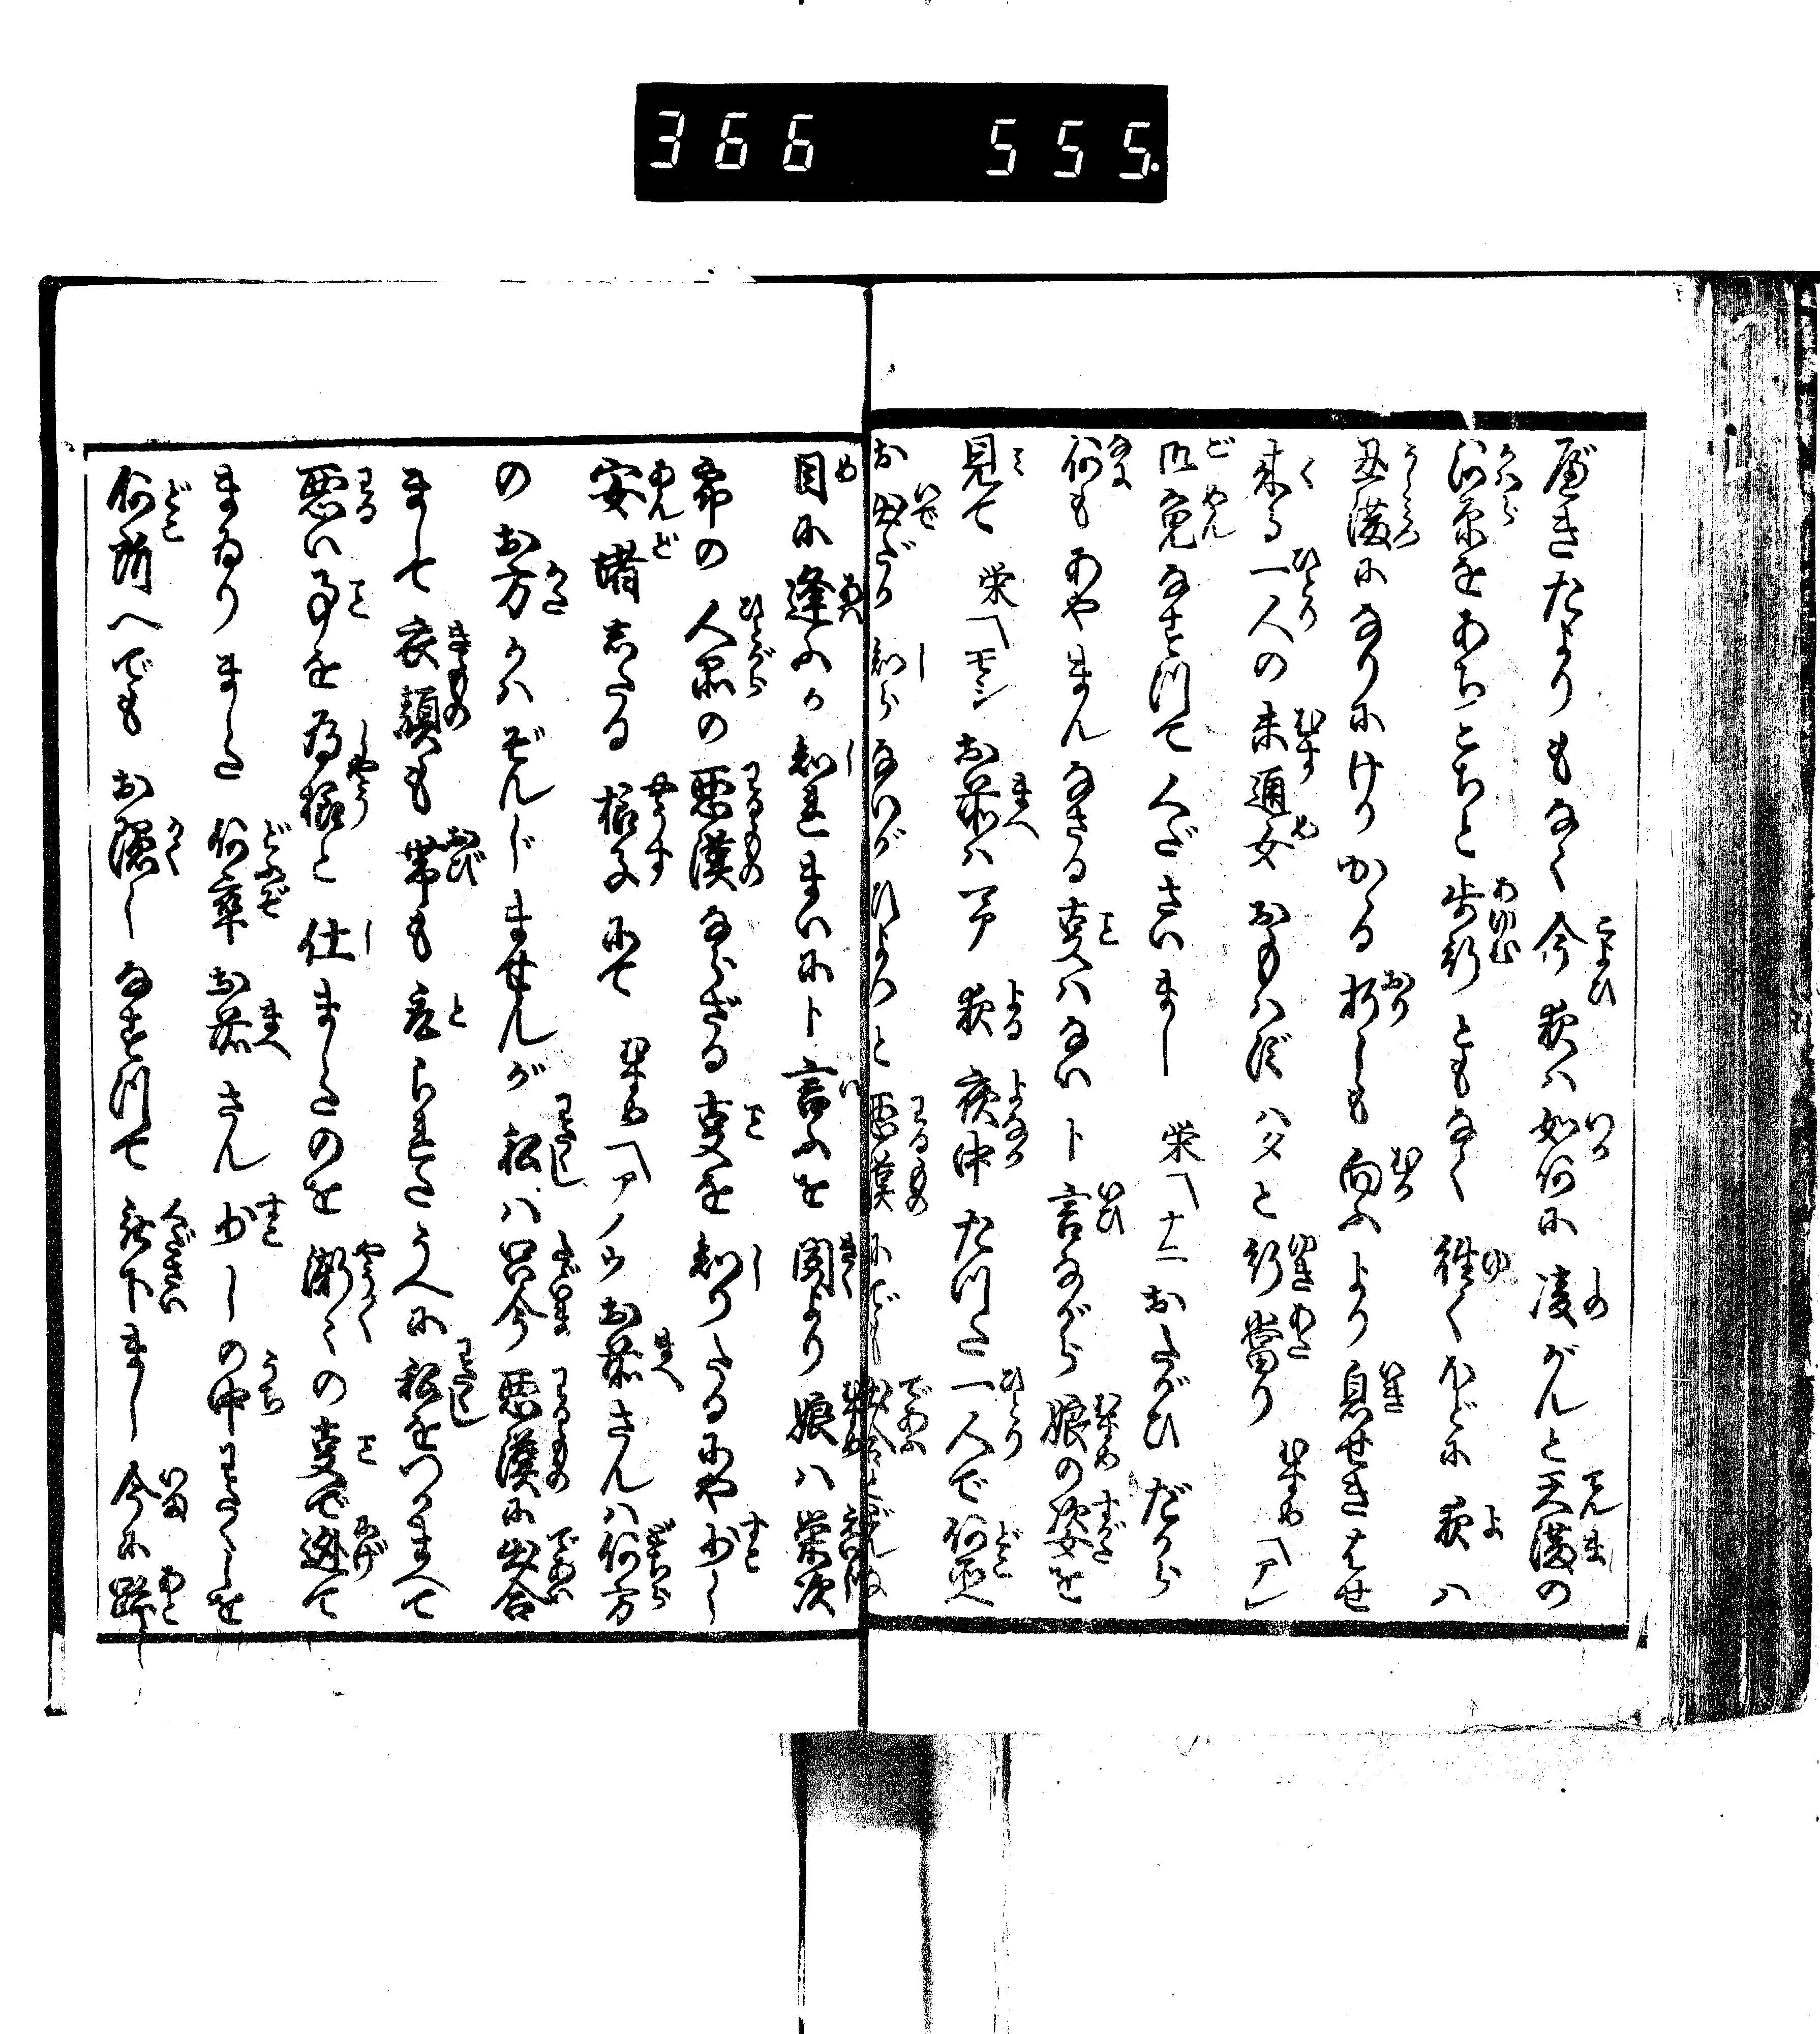 366 555.
べきたよりもなく今夜ハ如何に凌がんと天満の
河原をあちこちと歩行ともなく徃くほどに夜ハ
丑満になりにけりかゝる折しも向ふより息せきはせ
来る一人の未通女おもハずハタと行當りむすめ〽アレ
御免なすつてくださいまし 栄〽ナニおたがひだから
何もあやまんなさる事ハないト言ながら娘の姿を
見て 栄〽モシお前ハマア夜夜中たつた一人で何処へ
お出だか知らないがひよつと悪漢にでも出合
目に逢ふか知れまいにト言ふを聞より娘ハ栄次
郎の人品の悪漢ならざる事を知りたるにや少し
安堵したる様子にて むすめ〽アノウお前さんハ何方
のお方かハぞんじませんが私ハ只今悪漢に出合
まして衣類も帯も取られたうへに私をつかまへて
悪い事を為様と仕ましたのを漸々の事で逃て
まゐりました何卒お前さん少しの中わたしを
何所へでもお隠しなすつて被下まし今に跡